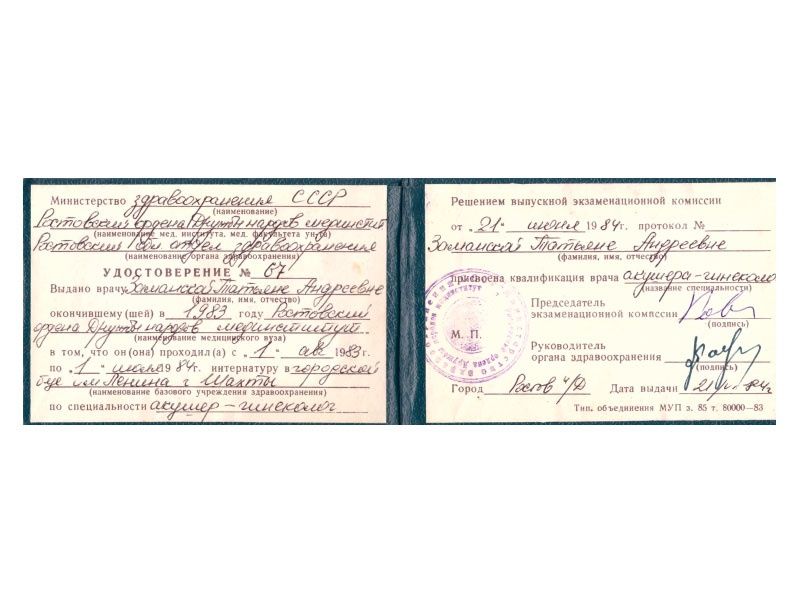 Министерство здравоохранения СССР
(наименование)
Ростовский ордена Дружбы народов мединститут
(наименование мед. института, мед. факультета ун-та)
Ростовский обл отдел здравоохранения
(наименование органа здравоохранения)
УДОСТОВЕРЕНИЕ № 67
Выдано врачу Заманской Татьяне Андреевне
(фамилия, имя, отчество)
окончившему(шей) в 1983 году Ростовский
ордена Дружбы народов мединститут
(наименование медицинского вуза)
в том, что он(она) проходил(а) с „1“ авг 1983 г.
по „1“ июля 1984 г. интернатуру в городской
б-це им Ленина г Шахты
(наименование базового учреждения здравоохранения)
по специальности акушер-гинеколог
Решением выпускной экзаменационной комиссии
от „21“ июня 1984 г. протокол №
Заманской Татьяне Андреевне
(фамилия, имя, отчество)
присвоена квалификация врача акушера-гинеколо
(название специальности)
Председатель
экзаменационной комиссии
(подпись)
М. П.
Руководитель
органа здравоохранения
(подпись)
Город Ростов н/Д Дата выдачи 21
Тип. объединения МУП з. 85 т. 80000—83